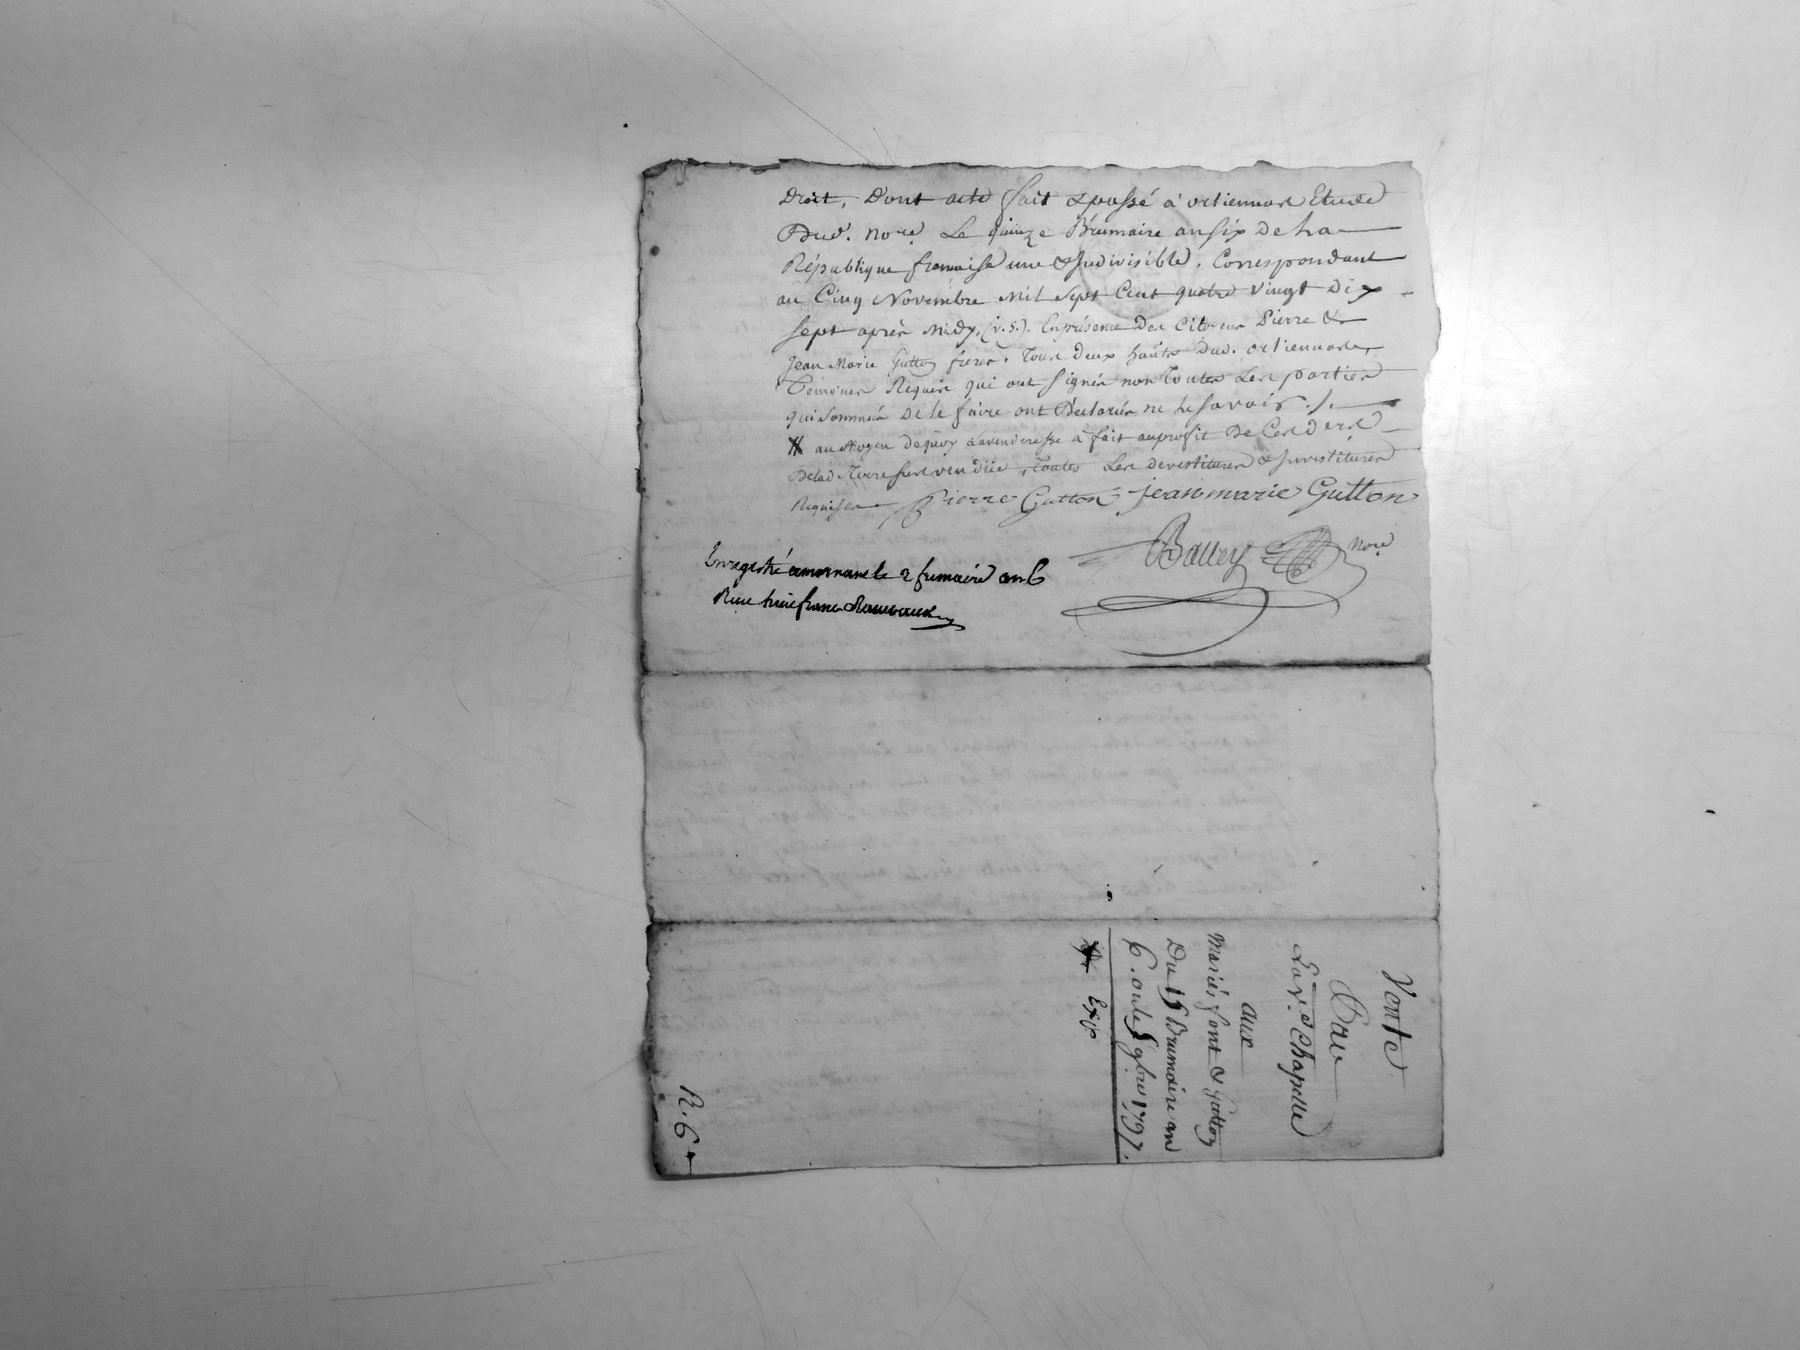 Droit, Dont acte fait & passé à ortiennas Etude
Dud. Nore. Le quinze Brumaire an six De La
République francaise une & Indivisible, Correspondant
au Cinq Novembre Mil Sept Cent quatre vingt Dix
Sept après Midy, (v.s.). En présence Des Citoyens Pierre &
Jean Marie Gutton freres, Tous Deux hants Dud. ortiennas,
Témoins Requis qui ont signés non Toutes Les parties
qui Sommées De le faire ont Déclarés ne le savoir ./.
au Moyen De quoy La venderesse a fait au profit De Ces Ders
De lad. Terre sus vendüe, Toutes Les Devestitures & Investitures
Requises Pierre Gutton jean marie Gutton
Balley Nore
Enregistré a mornan le 2 frimaire an 6
Reçu
Vente
Par
La ve. Chapelle
aux
Mariés font & Gutton
Du 15 Brumaire an
6. ou le 5 9bre 1797.
Exp
R. 6